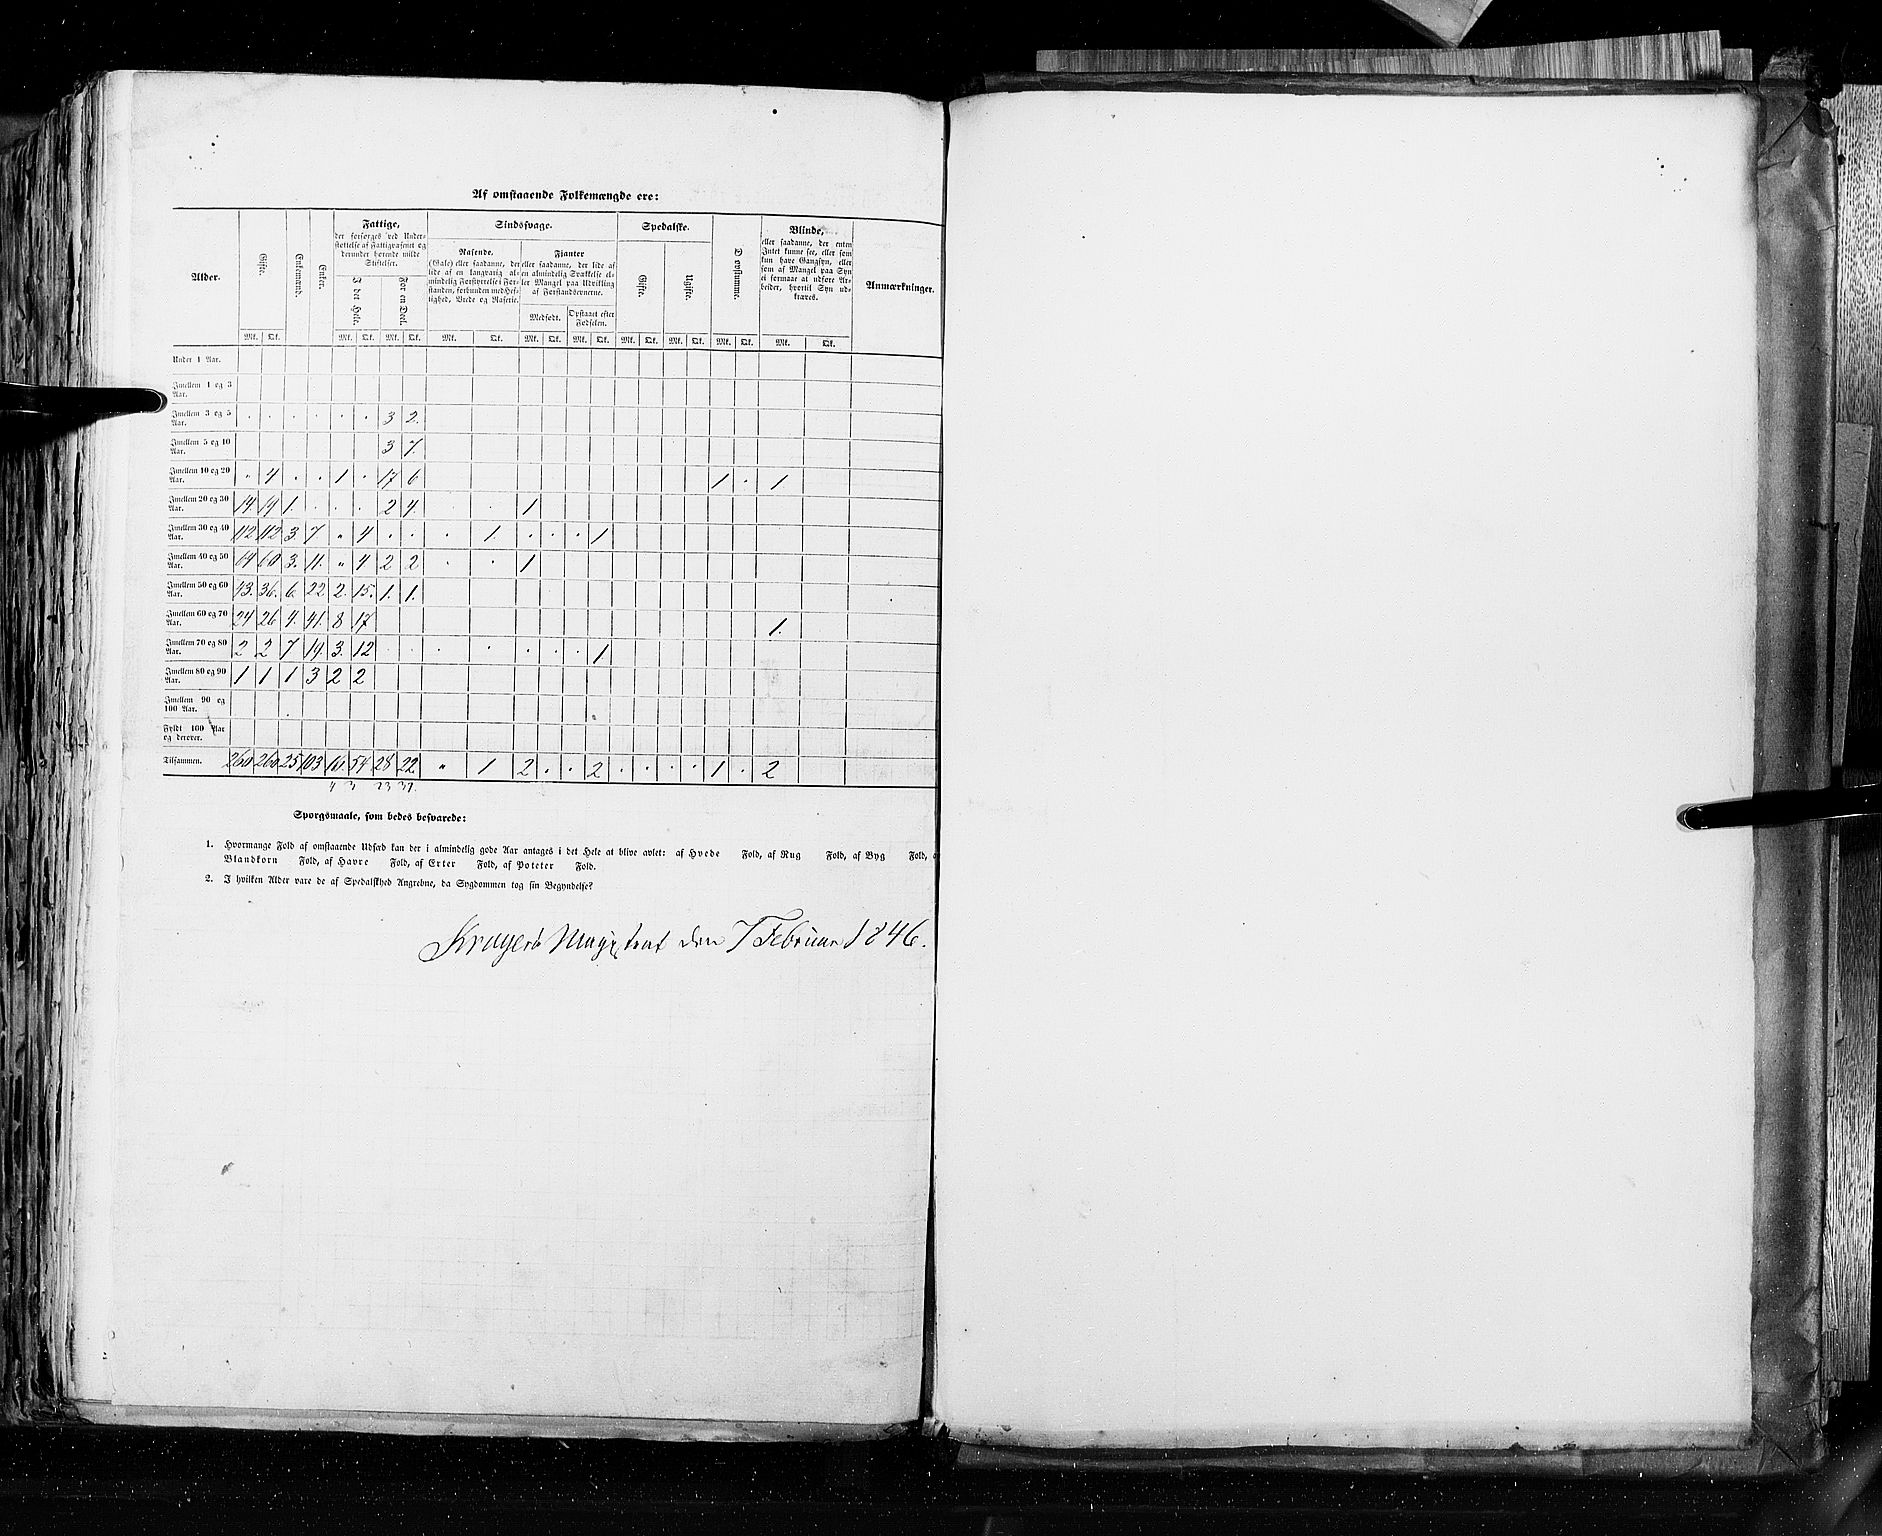 Af omstaaende Folkemængde ere:
Alder. Gifte. Enkemænd. Enker. Fattige, Sindssvage. Spedalske. Døvstumme. Blinde, Anmærkninger.
der forsørges ved Under-
støttelse af Fattigvæsenet og
derunder hørende milde
Stiftelser.
I det Hele. For en Deel.
Rasende,
(Gale) eller saadanne, der
lide af en langvarig al-
mindelig Forstyrrelse i For-
standen, forbunden med Hef-
tighed, Vrede og Raserie.
Fjanter
eller saadanne, der lide af
en almindelig Svækkelse el-
ler Mangel paa Udvikling
af Forstandsevnerne.
Medfødt. Opstaaet efter
Fødselen.
Gifte. Ugifte.
eller saadanne, der enten
Intet kunne see, eller som
kun have Gangsyn, eller
som af Mangel paa Syn
ei formaae at udføre Ar-
beider, hvortil Syn ud-
kræves.
Mk. Qk. Mk. Qk. Mk. Qk. Mk. Qk. Mk. Qk. Mk. Qk. Mk. Qk. Mk. Qk. Mk. Qk. Mk. Qk.
Under 1 Aar.
Imellem 1 og 3
Aar.
Imellem 3 og 5 . . . . . . 3 2.
Aar.
Imellem 5 og 10 3 7.
Aar.
Imellem 10 og 20 " 4 . . 1 . 17 6 1 . 1
Aar.
Imellem 20 og 30 14. 19 1. . . . 2 4. . . 1
Aar.
Imellem 30 og 40 112 112 3. 7 " 4 . . . 1. . . . 1
Aar.
Imellem 40 og 50 64 60 3. 11. " 4 2 2 . . 1
Aar.
Imellem 50 og 60 43. 36. 6. 22 2. 15. 1. 1.
Aar.
Imellem 60 og 70 24 26 4. 41. 8 17 1.
Aar.
Imellem 70 og 80 2 2 7 19. 3. 12 . . . . . . . 1
Aar.
Imellem 80 og 90 1 1 1 3 2 2
Aar.
Imellem 90 og
100 Aar.
Fyldt 100 Aar
og derover.
Tilsammen. 260 260 25 103 16. 54 28 22. " 1 2 . . 2 . . . . 1 . 2
4 3 23 31.
Spørgsmaale, som bedes besvarede:
1. Hvormange Fold af omstaaende Udsæd kan der i almindelig gode Aar antages i det Hele at blive avlet: af Hvede Fold, af Rug Fold, af Byg Fold,
Blandkorn Fold, af Havre Fold, af Erter Fold, af Poteter Fold.
2. I hvilken Alder vare de af Spedalskhed Angrebne, da Sygdommen tog sin Begyndelse?
Kragerø Magistrat den 7 Februar 1846.